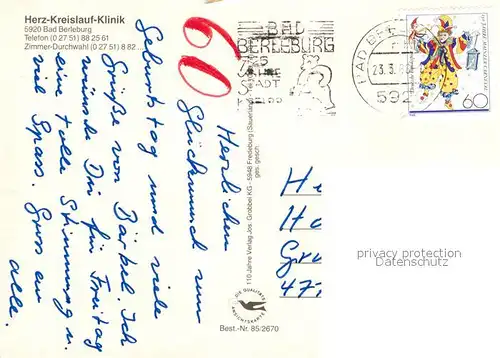 Herz-Kreislauf-Klinik
5920 Bad Berleburg
Telefon (0 27 51) 88 25 61
Zimmer-Durchwahl (0 27 51) 8 82 ...
60
Herzlichen
Glückwunsch zum
Geburtstag und viele
Grüße von Bärbel. Ich
wünsche Dir für Freitag
eine tolle Stimmung u.
viel Spass. Gruss an
alle.
110 Jahre Verlag Jos. Grobbel KG - 5948 Fredeburg (Sauerland)
ges. gesch.
DIE QUALITÄTS
ANSICHTSKARTE
Best.-Nr. 85/2670
BAD
BERLEBURG
JAHRE
STADT
BAD BER
23.3.8
592
150 JAHRE MAINZER FASTNACHT
Deutsche Bundespost
60
H
Ha
Gr
47
privacy protection
Datenschutz